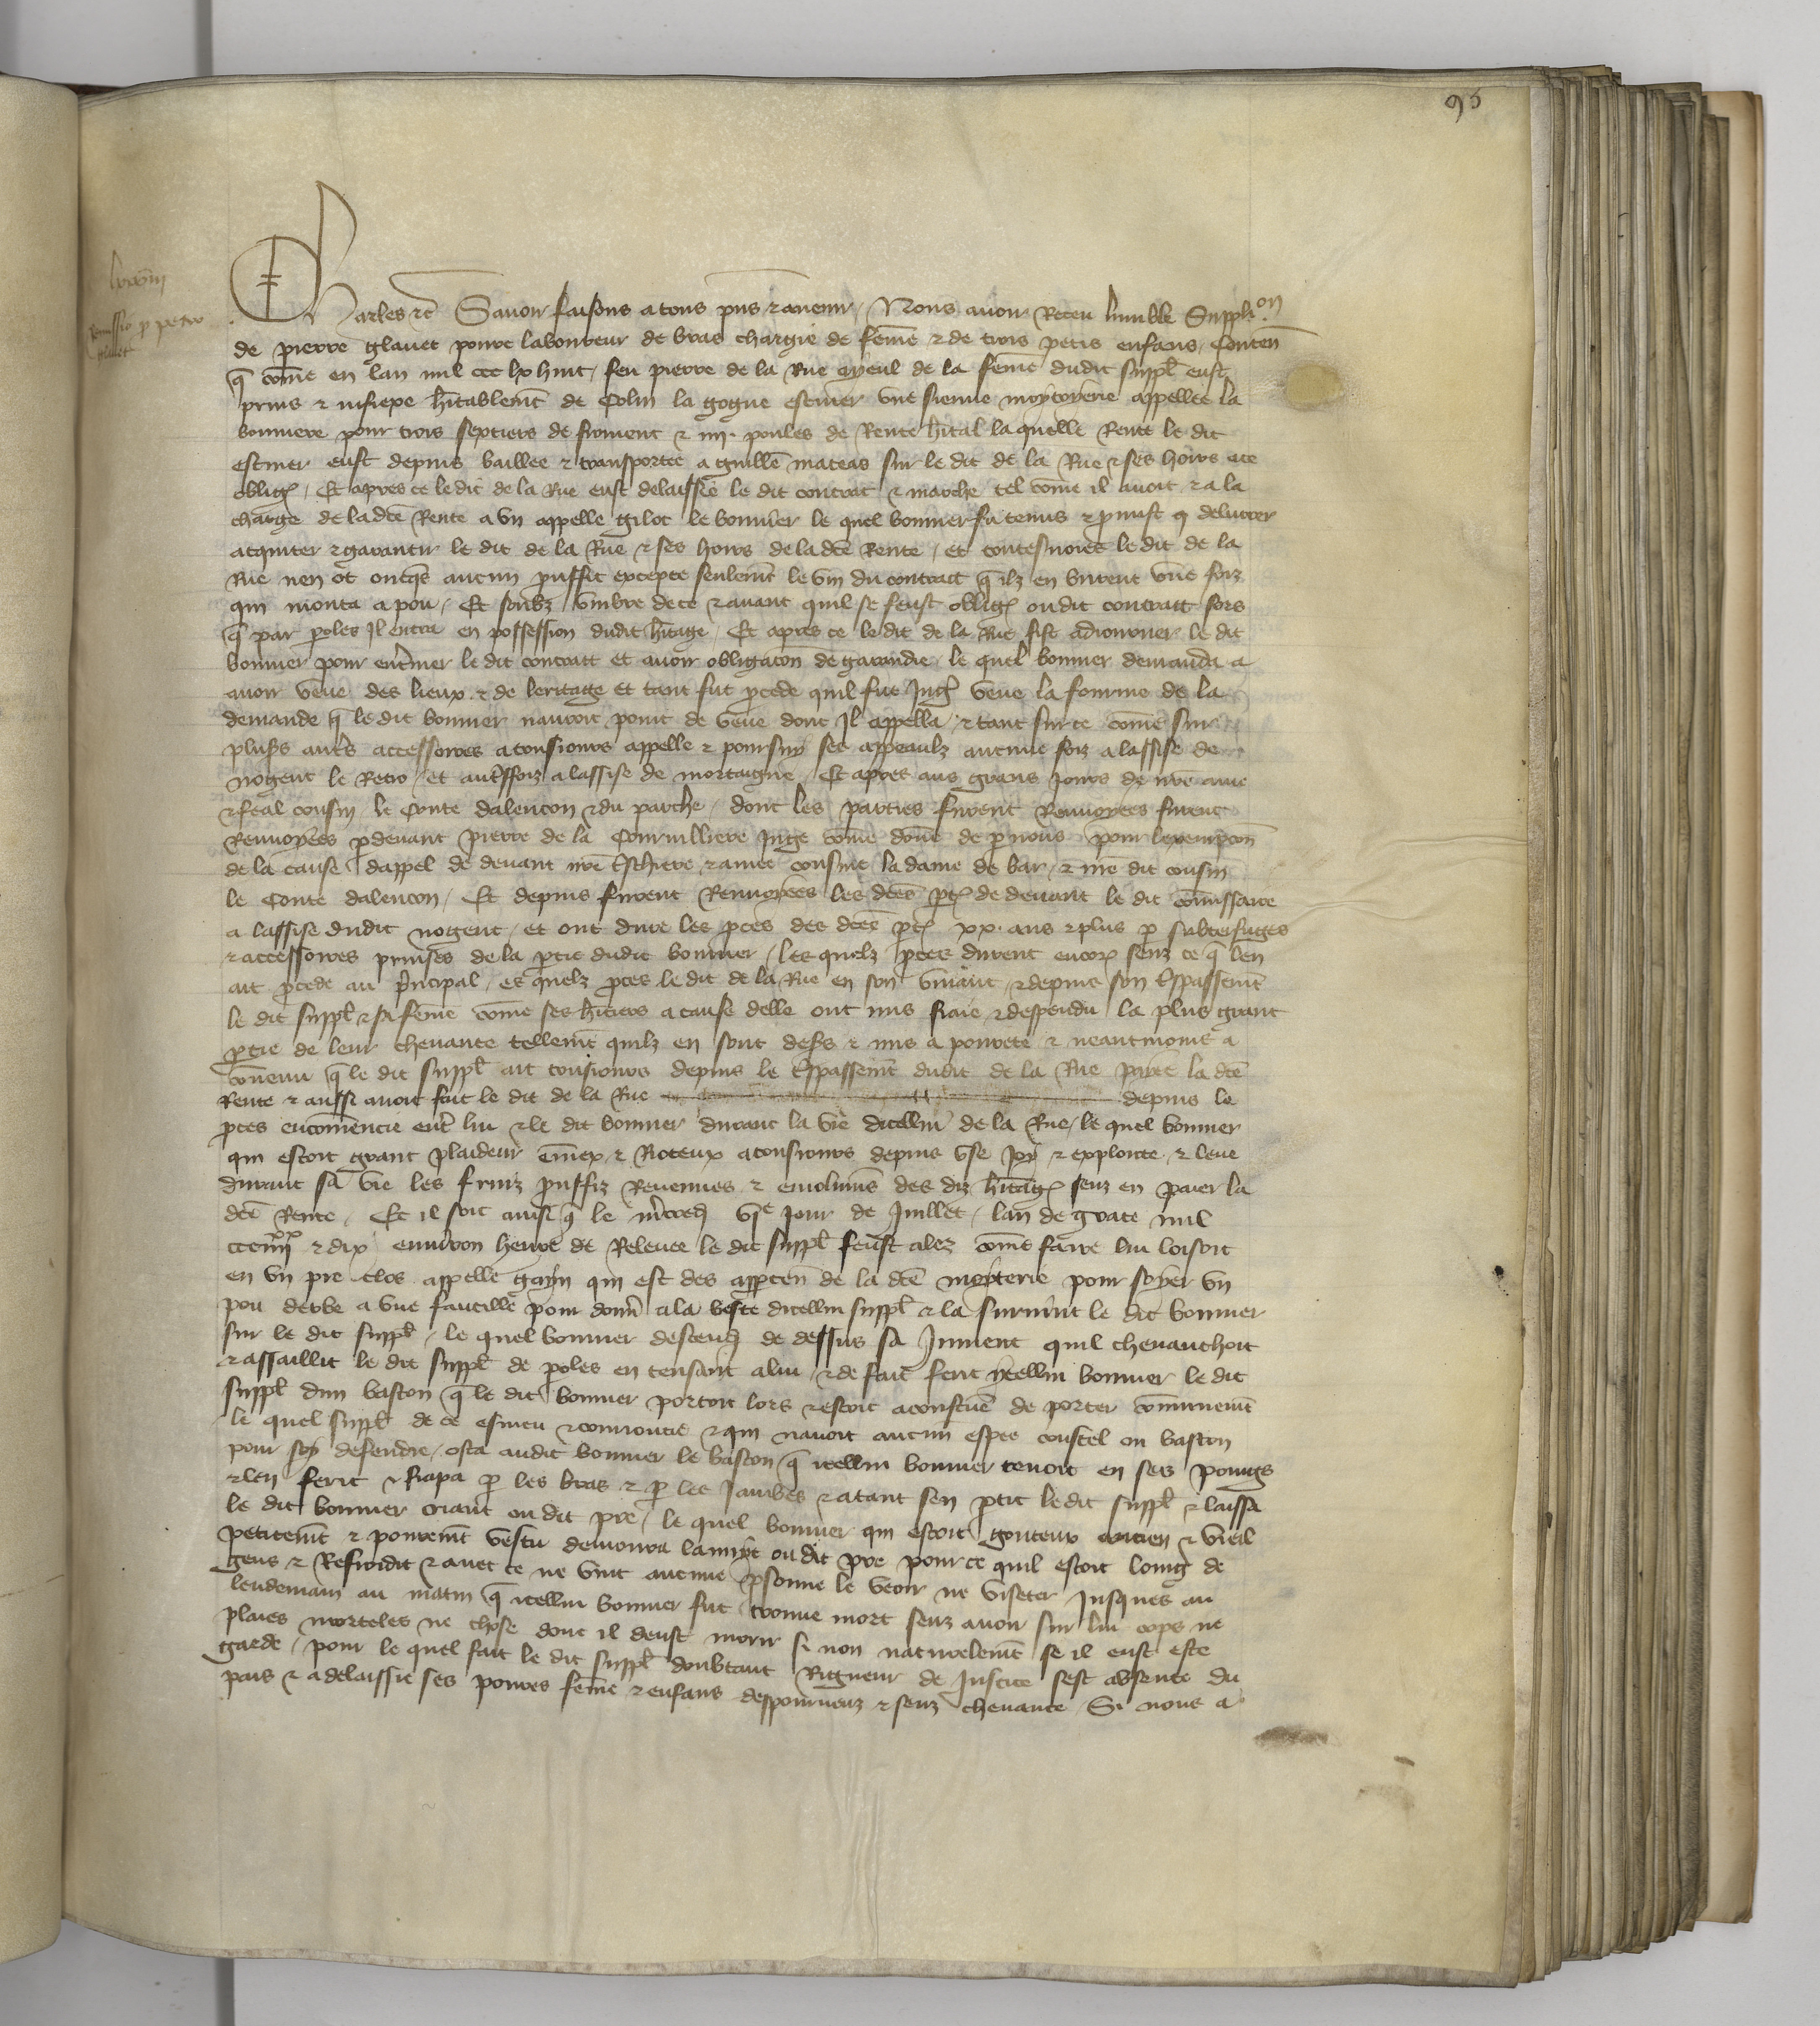 95
lxxviii
Remissio p petro
glauet
Charles etc Sauoir faisons a tous pns & auenir Nous auoir Receu lumble Supplicon
de pierre glauet poure laboureur de bras chargie de feme & de trois petis enfans Conten
q come en lan mil ccc lx huit feu pierre de la Rue ayeul de la feme dudit suppl eust
prins & fieffe hitablemt de Colin la gogue escuier vne sienne moytoyerie appellee la
bonniere pour trois septiers de froment & iiii poules de Rente hital la quelle Rente le dit
escuier eust depuis baillee & transportee a guille mateas sur le dit de la Rue & ses hoirs
oblig Et apres ce le dit de la Rue eust delaissie le dit contrat & marche tel come il auoit & a la
charge de la dce Rente a vn appelle gilot le bonnier le quel bonnier fu tenus & pmist deliurer
acquiter & garantir le dit de la Rue & ses hoirs de la dce Rente et toutesuoies le dit de la
Rue nen ot oncqs aucun prouffit excepte seulemt le vin du contract q ilz en burent vne foiz
qui monta a pou Et soubz vmbre de ce & auant quil se feust oblig ou dit contract fors
q par poles Il entra en possession dudit hitage Et apres ce le dit de la Rue fist adiourner le dit
bonnier pour entiner le dit contract et auoir obligacon de garandie le quel bonnier demanda a
auoir veue des lieux & de leritage et tant fut pcede quil fut Jug veue la fourme de la
demande q le dit bonnier nauroit point de veue dont Il appella & tant sur ce come sur
plusrs autrs accessoires a tousiours appelle & poursuy ses appeaulz aucune foiz a lassise de
nogent le Retro et autsfoiz a lassise de mortaigne Et apres aus grans Jours de nre ame
& feal cousin le Conte dalencon & du parche dont les parties furent Renuoyees furent
Renuoyees pdeuant pierre de la Couruilliere Juge come done de p nous pour
de la cause dappel de deuant nre tschiere & amee cousine la dame de bar & nre dit cousin
le Conte dalencon Et depuis furent Renuoyees les dces pt de deuant le dit comissaire
a lassise dudit nogent et ont dure les pces des dces pt xx ans & plus p subterfuges
& accessoires prinses de la ptie dudit bonnier les quelz pces durent encor senz ce q len
ait pcede au pncipal es quelz pces le dit de la Rue en son viuant & depuis son tspassemt
le dit suppl & sa feme come ses hitiers a cause delle ont mis fraie & despendu la plus grant
ptie de leur cheuance tellemt quilz en sont desrs & mis a pourete & neantmoins a
conuenu q le dit suppl ait tousiours depuis le tspassemt dudit de la Rue paie la dce
Rente & aussi auoit fait le dit de la Rue depuis le
pces encomencie ent lui & le dit bonnier durant la vie dicellui de la Rue le quel bonnier
qui estoit grant plaideur & Roteux a tousiours depuis vse Joy & exploitte & leue
durant sa vie les fruiz prouffiz Reuenues & emolumns des diz hitag senz en paier la
dce Rente Et il soit ainsi q le mcredi vje Jour de Juillet lan de grace mil
ccc iiiixx & dix enuiron heure de Releuee le dit suppl feust alez come faire lui loisoit
en vn pre clos appelle gayn qui est des apptenn de la dce moyterie pour soyer vn
pou derbe a vne faucille pour donn a la beste dicellui suppl & la suruint le dit bonnier
sur le dit suppl le quel bonnier descendi de dessus sa Jument quil cheuauchoit
& assaillit le dit suppl de poles en tensant a lui & de fait ferit ycellui bonnier le dit
suppl dun baston q le dit bonnier portoit lors & estoit acoustume de porter comunemt
le quel suppl de ce esmeu & courroucie & qui nauoit aucun espee coustel ou baston
pour soy defendre osta audit bonnier le baston q icellui bonnier tenoit en ses poings
& len ferit & frapa p les bras & p les Jambes & atant sen ptit ledit suppl & laissa
le dit bonnier criant ou dit pre le quel bonnier qui estoit gouteux ancien & vieil
petitemt & pouremt vestu demoura la nuyt ou dit pre pour ce quil estoit loing de
gens & Refroidit & auec ce ne vint aucune psonne le veoir ne viseter Jusques au
lendemain au matin q icellui bonnier fut trouue mort senz auoir sur lui cops ne
plaies morteles ne chose dont il deust morir si non naturelemt se il eust este
garde pour le quel fait le dit suppl doubtant Rigueur de Justice sest absente du
pais & a delaissie ses poures feme & enfans despourueuz & senz cheuance Si nous a